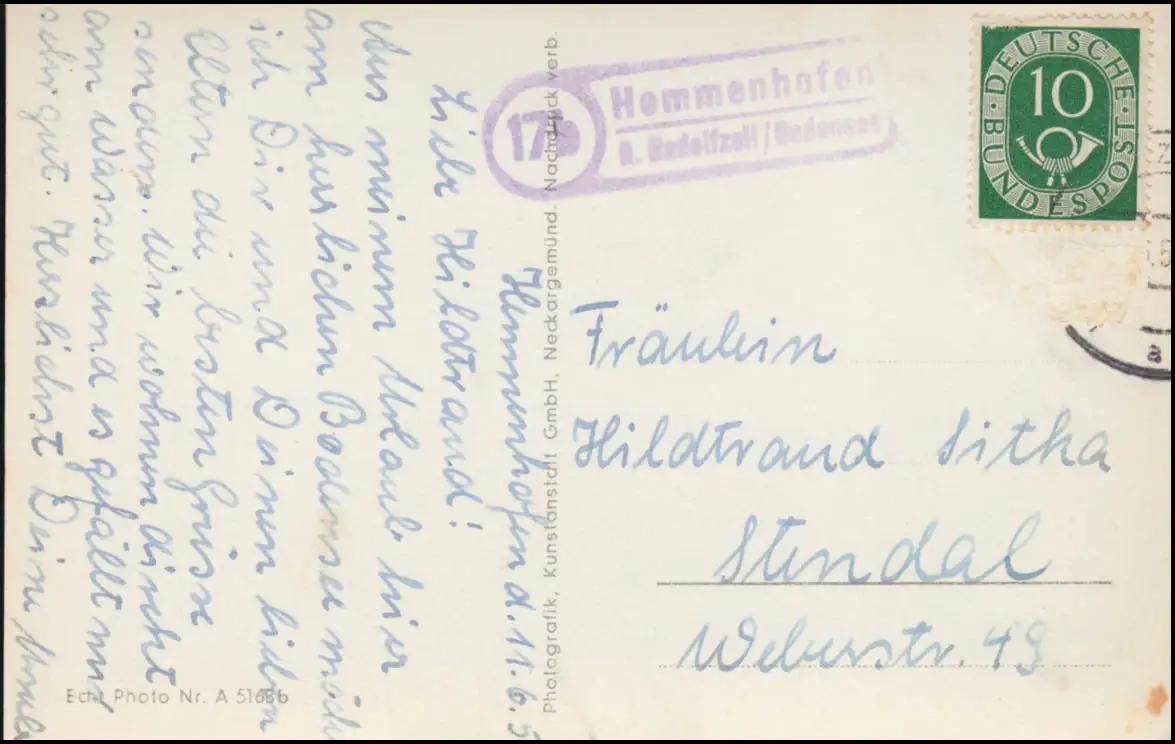 Hemmenhofen d. 11.6.5
Liebe Hildtraud!
Aus meinem Urlaub hier
am herrlichen Bodensee möch
ich Dir und Deinen lieben
Eltern die besten Grüsse
senden. Wir wohnen direkt
am Wasser und es gefällt mir
sehr gut. Herzlichst Deine
Echt Photo Nr. A 5168b
Photografik, Kunstanstalt GmbH, Neckargemünd. Nachdruck verb.
17b
Hemmenhofen
ü. Radolfzell/Bodensee
DEUTSCHE
10
BUNDESPOST
Fräulein
Hildtraud Sitka
Stendal
Weberstr. 49